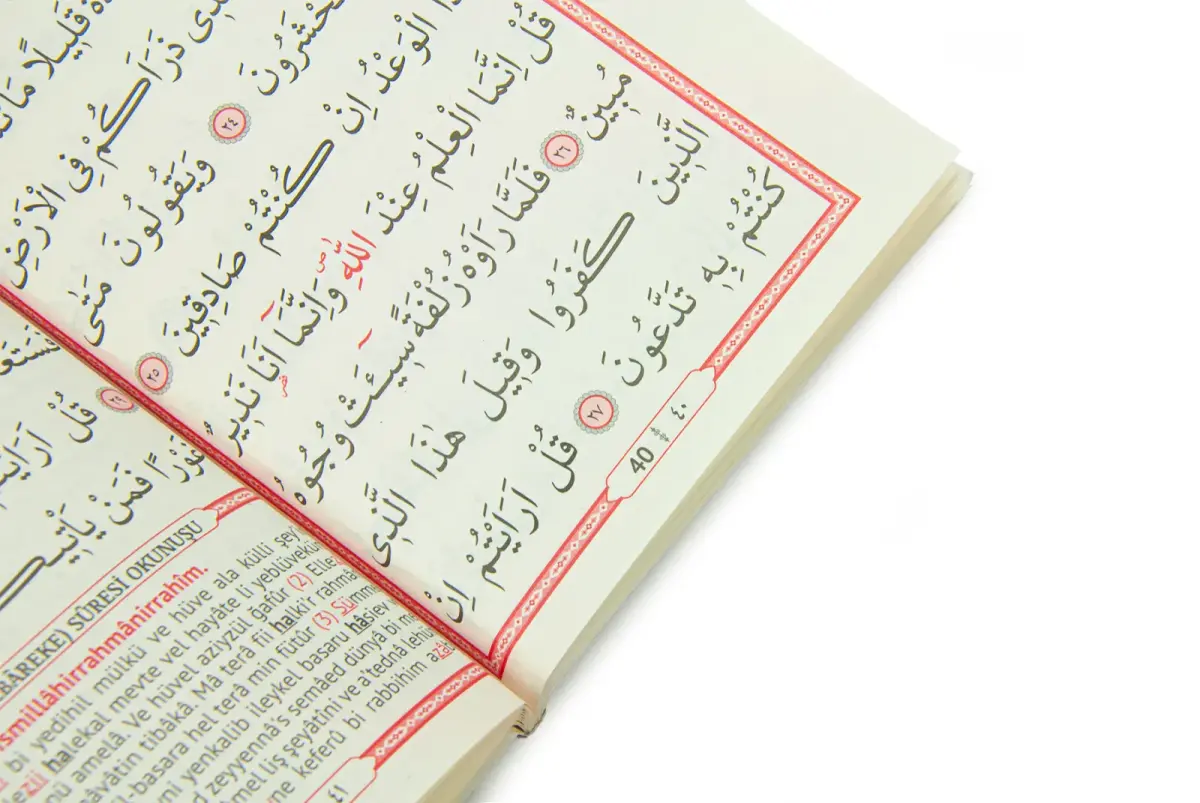 قَلِيلًا مَا
ذَرَاَكُمْ فِى الْاَرْضِ
تُحْشَرُونَ ٢٤ وَيَقُولُونَ مَتٰى
الْوَعْدُ اِنْ كُنْتُمْ صَادِقِينَ ٢٥
قُلْ اِنَّمَا الْعِلْمُ عِنْدَ اللّٰهِۖ وَاِنَّمَٓا اَنَا۬ نَذِيرٌ
مُبِينٌ ٢٦ فَلَمَّا رَاَوْهُ زُلْفَةً سِٓيئَتْ وُجُوهُ
الَّذِينَ كَفَرُوا وَقِيلَ هٰذَا الَّذِى
كُنْتُمْ بِهِ تَدَّعُونَ ٢٧ قُلْ اَرَاَيْتُمْ اِنْ
40 ٤٠
٢٩ قُلْ
غَوْرًا فَمَنْ
BÂREKE) SÛRESİ OKUNUŞU
smillâhirrahmânirrahîm.
bi yedihil mülkü ve hüve ala külli şey
halekal mevte vel hayâte li yeblüvekü
amelâ. Ve hüvel aziyzül ğafûr (2) Elle
mâvâtin tibâkâ. Mâ terâ fii halki'r rahmâ
l-basara hel terâ min fütûr (3) Sümm
yenkalib ileykel basaru hâsiev
zeyyennâ's semâed dünyâ bi me
liş şeyâtini ve a'tednâ lehü
ne keferû bi rabbihim azâb
٤١